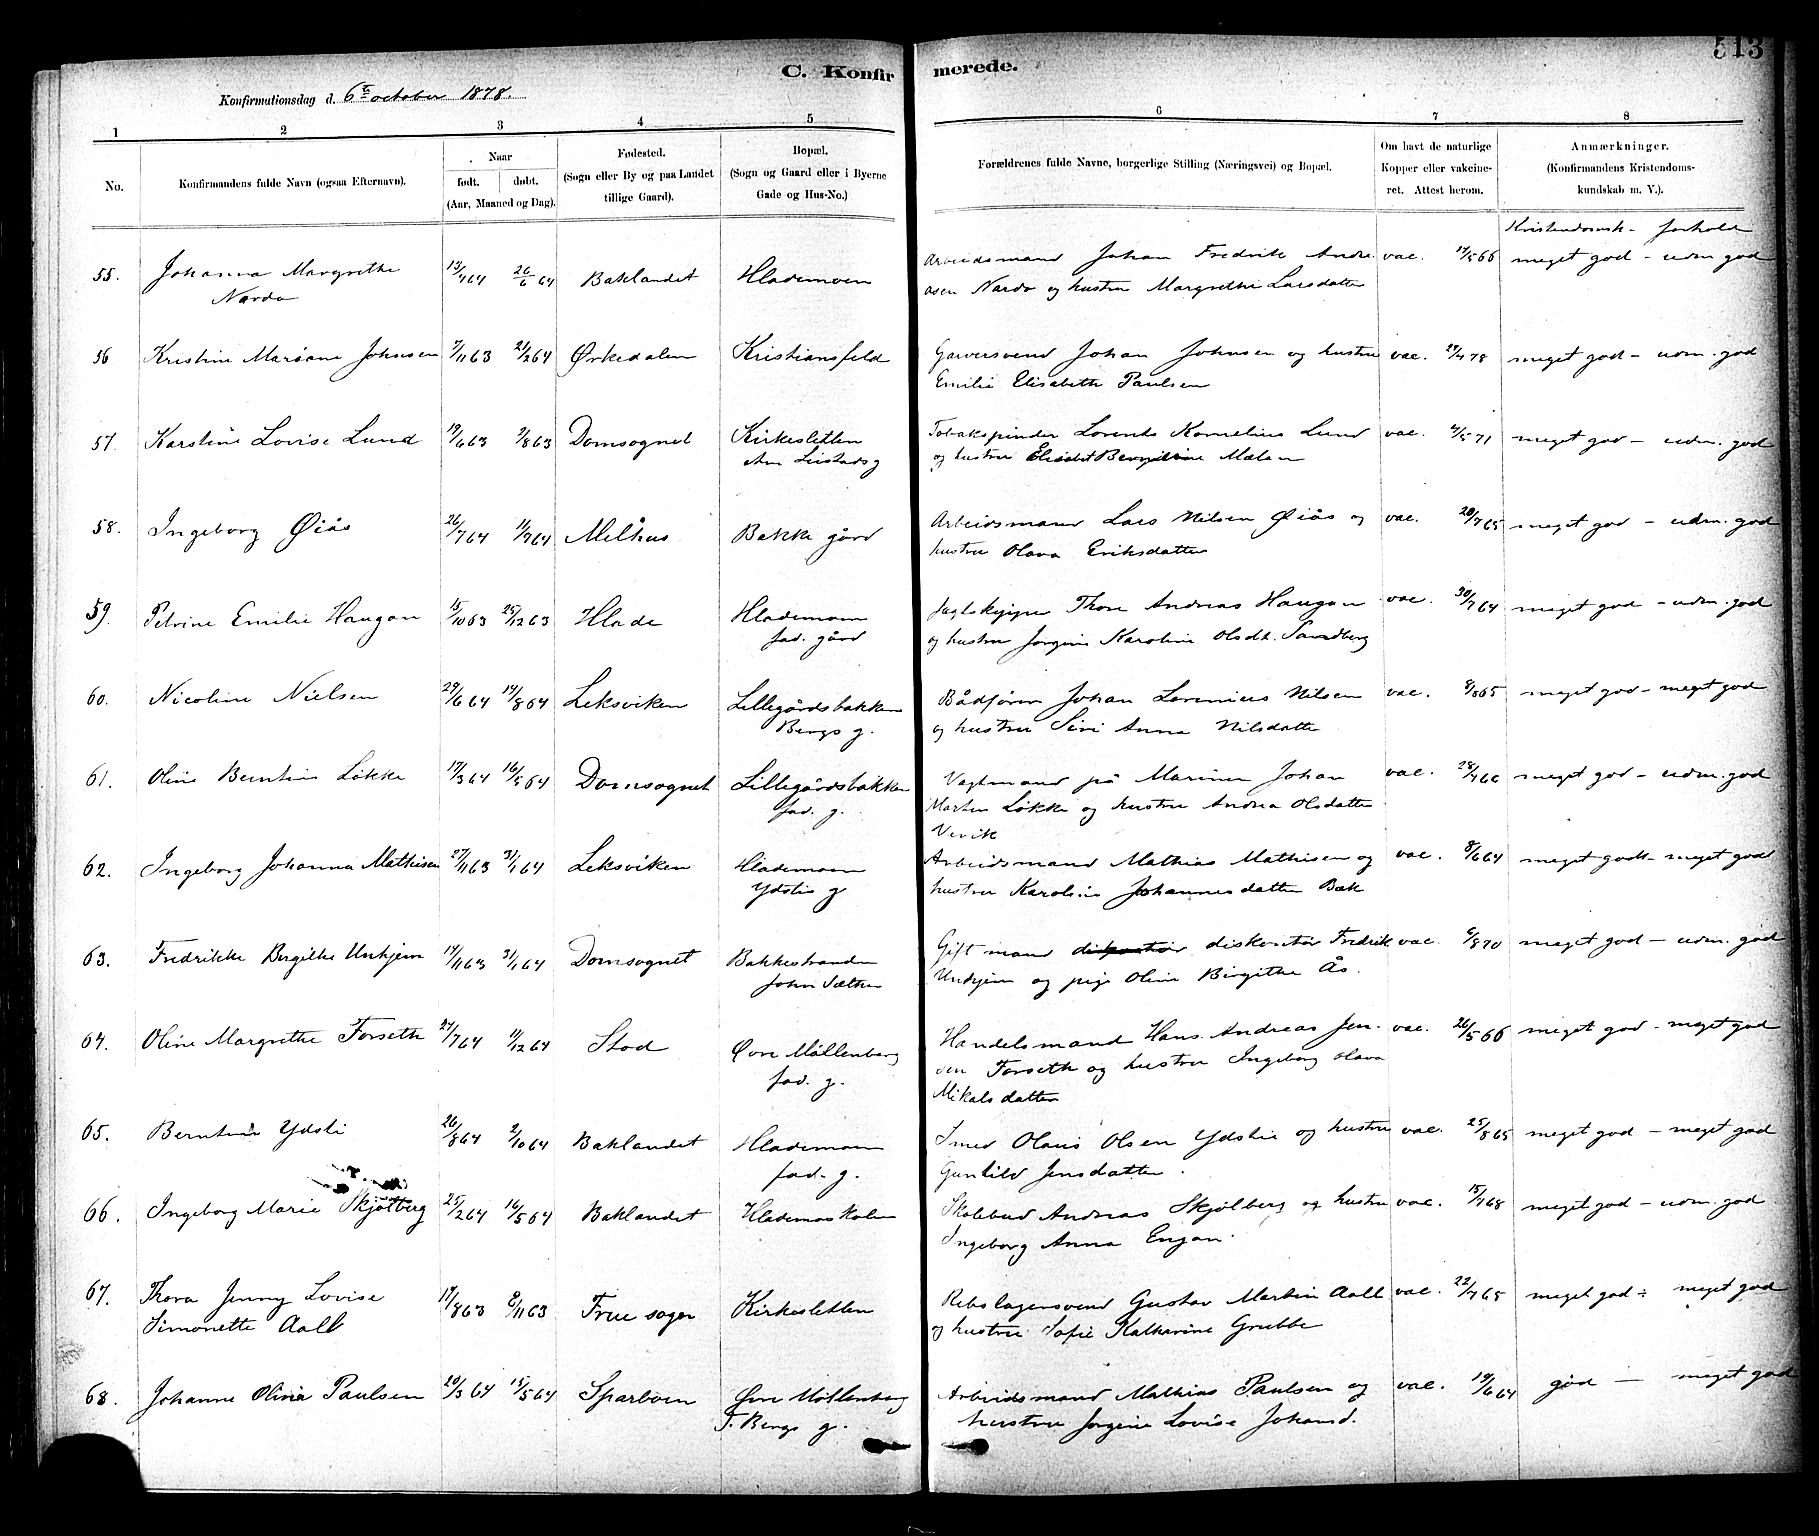 513
C. Konfirmerede.
Konfirmationsdag d. 6te october 1878.
1 2 3 4 5 6 7 8
No.
Konfirmandens fulde Navn (ogsaa Efternavn).
Naar
født. døbt.
(Aar, Maaned og Dag).
Fødested.
(Sogn eller By og paa Landet
tillige Gaard).
Bopæl.
(Sogn og Gaard eller i Byerne
Gade og Hus-No.)
Forældrenes fulde Navne, borgerlige Stilling (Næringsvei) og Bopæl.
Om havt de naturlige
Kopper eller vakcine-
ret. Attest herom.
Anmærkninger.
(Konfirmandens Kristendoms-
kundskab m. V.).
Kristendomsk- forhold
55. Johanna Margrethe 13/4 64 26/6 64 Baklandet Hlademoen Arbeidsmand Johan Fredrik Andre vac. 17/5 66 meget god - udm. god
Nardo asen Nardo og hustru Margrethe Larsdatter
56 Kristine Mariane Johnsen 7/11 63 21/2 64 Ørkedalen Kristiansfeld Garversvend Johan Johnsen og hustru vac. 29/4 78 meget god - udm. god
Emilie Elisabeth Paulsen
57. Karstine Lovise Lund 19/6 63 2/8 63 Domsognet Kirkesletten Tobakspinder Lorents Kornelius Lund vac. 4/5 71 meget god - udm. god
og hustru Elisabet
58. Ingeborg Øiås 26/7 64 11/7 64 Melhus Bakke gård Arbeidsmand Lars Nilsen Øiås og vac. 20/7 65 meget god - udm. god
hustru Olava Eriksdatter
59. Petrine Emilie Haugan 15/10 63 25/12 63 Hlade Hlademoen Thore Andreas Haugan vac. 30/7 64 meget god - udm. god
fad. gård og hustru Jorgine Karoline Olsdt. Sandberg
60. Nicoline Nielsen 29/6 64 14/8 64 Leksviken Lillegårdsbakken Bådfører Johan Lorenius Nilsen vac. 8/8 65 meget god - meget god
Bergs g. og hustru Siri Anna Nilsdatter
61. Oline Berntine Løkke 17/3 64 16/5 64 Domsognet Lillegårdsbakken Vagtmand på Marinen Johan vac. 28/4 66 meget god - udm. god
fad. g. Martin Løkke og hustru Andrea Olsdatter
Vevik
62. Ingeborg Johanna Mathisen 27/11 63 31/1 64 Leksviken Hlademoen Arbeidsmand Mathias Mathisen og vac. 8/6 64 meget godt - meget god
Ydstis g hustru Karoline Johannesdatter Bæk
63. Fredrikke Birgitte Unkjem 14/11 63 31/1 64 Domsognet Bakkestranden Gift mand diskontør Fredrik vac. 6/8 70 meget god - udm. god
John Sæther Unkjem og pige Oline Birgithe Ås.
64. Oline Margrethe Forseth 27/7 64 11/12 64 Stod Øvre Møllenberg Handelsmand Hans Andreas Jen- vac. 26/5 66 meget god - meget god
fad. g. sen Forseth og hustru Ingeborg Olava
Mikalsdatter
65. Berntine Ydsti 26/8 64 2/10 64 Baklandet Hlademoen Smed Olaus Olsen Ydstie og hustru vac. 25/8 65 meget god - meget god
fad. g. Gunhild Jensdatter.
66. Ingeborg Marie Skjølberg 25/2 64 16/5 64 Baklandet Hlademoskolen Skolebud Andreas Skjølberg og hustru vac. 15/4 68 meget god - udm. god
Ingeborg Anna Engan.
67. Thora Jenny Lovise 17/8 63 8/11 63 Frue sogn Kirkesletten Rebslagersvend Gustav Martin Aall vac. 22/4 65 meget god - meget god
Simonette Aall og hustru Sofie Katharine Grubbe
68. Johanne Olivia Paulsen 20/3 64 15/5 64 Sparboen Øvre Møllenberg Arbeidsmand Mathias Paulsen og vac. 19/6 64 god - meget god
T. Bergs g. hustru Jorgine Lovise Johansd.